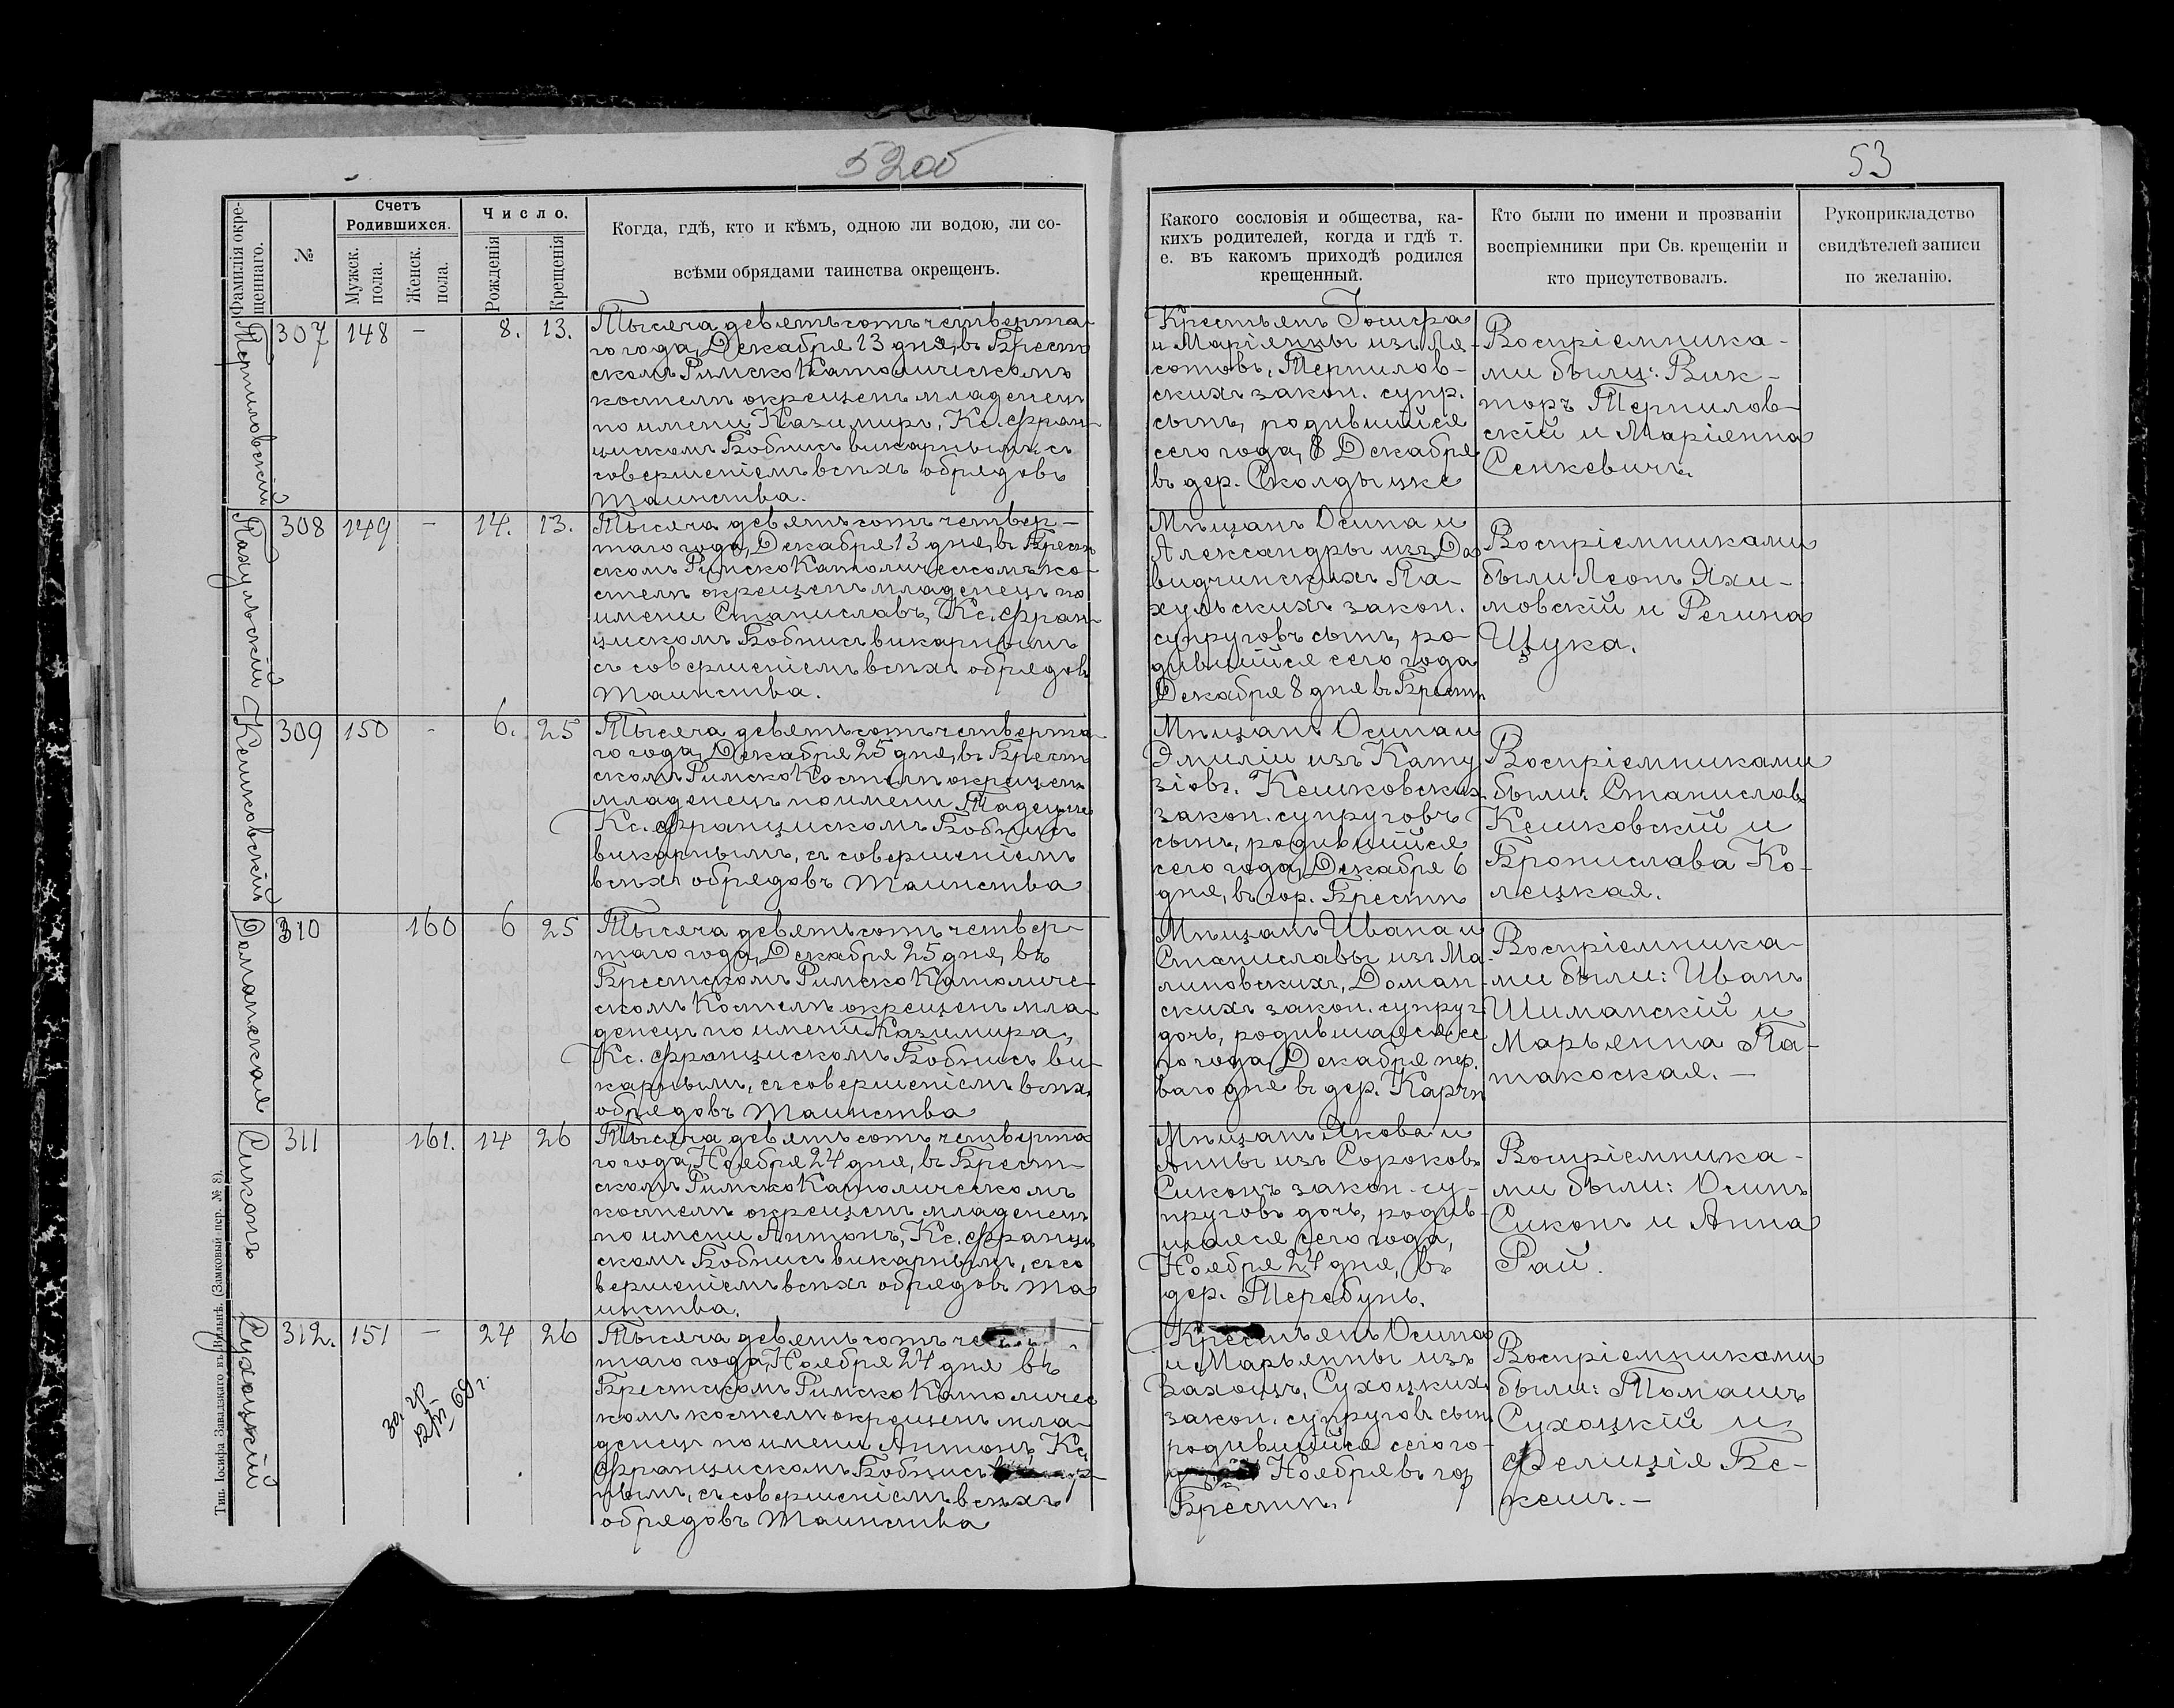 52об
53
Фамилія окре-
щеннаго.
№
Счетъ
Родившихся.
Мужск.
пола.
Женск.
пола.
Число.
Рожденія
Крещенія
Когда, гдѣ, кто и кѣмъ, одною ли водою, ли со-
всѣми обрядами таинства окрещенъ.
Какого сословія и общества, ка-
кихъ родителей, когда и гдѣ т.
е. въ какомъ приходѣ родился
крещенный.
Кто были по имени и прозваніи
воспріемники при Св. крещеніи и
кто присутствовалъ.
Рукоприкладство
свидѣтелей записи
по желанію.
Терпиловскій
307 148 - 8. 13.
Тысяча девятьсотъ четверта-
го года, Декабря 13 дня, въ Брест
скомъ Римско Католическомъ
костелѣ окрещенъ младенецъ
по имени Казимиръ, Кс. Фран-
цискомъ Бобнисъ викарнымъ, съ
совершеніемъ всѣхъ обрядовъ
Таинства.
Крестьянъ Іосифа
и Маріянны изъ Ля-
сотовъ, Терпилов-
скихъ закон. супр.
сынъ, родившійся
сего года, 8 Декабря
въ дер. Сколдычке
Воспріемника-
ми были: Вик-
торъ Терпилов-
скій и Маріянна
Сенкевичъ.
Пахульскій
308 149 - 14. 13.
Тысяча девятьсотъ четвер-
таго года, Декабря 13 дня, въ Брест
скомъ Римско Католическомъ ко-
стелѣ окрещенъ младенецъ по
имени Станиславъ, Кс. Фран-
цискомъ Бобнисъ викарнымъ
съ совершеніемъ всѣхъ обрядовъ
Таинства.
Мѣщанъ Осипа и
Александры изъ Да
видчинскихъ Па-
хульскихъ закон.
супруговъ сынъ, ро-
дившійся сего года
Декабря 8 дня въ Брестѣ
Воспріемниками
были Леонъ Яхи-
мовскій и Регина
Щука.
Кешковскій
309 150 - 6. 25
Тысяча девятьсотъ четверта
го года, Декабря 25 дня, въ Брест
скомъ Римско Костелѣ окрещенъ
младенецъ по имени Тадеушъ
Кс. Францискомъ Бобнисъ
викарнымъ, съ совершеніемъ
всѣхъ обрядовъ Таинства
Мѣщанъ Осипа и
Эмиліи изъ Кату
зіовъ. Кешковскихъ
закон. супруговъ
сынъ, родившійся
сего года, Декабря 6
дня, въ гор. Брестѣ
Воспріемниками
были: Станиславъ
Кешковскій и
Бронислава Ко-
лецкая.
Доманская
310 160 6 25
Тысяча девятьсотъ четвер-
таго года, Декабря 25 дня, въ
Брестскомъ Римско Католиче-
скомъ Костелѣ окрещенъ мла-
денецъ по имени Казимира,
Кс. Францискомъ Бобнисъ ви-
карнымъ, съ совершеніемъ всѣх.
обрядовъ Таинства
Мѣщанъ Ивана и
Станиславы изъ Ма-
линовскихъ, Доман-
скихъ закон. супруг.
дочь, родившаяся се
го года, Декабря пер.
ваго дня въ дер. Карчи
Воспріемника-
ми были: Иванъ
Шиманскій и
Марьянна Па-
такоская.-
Сиконъ
311 161. 14 26
Тысяча девятьсотъ четверта
го года, Ноября 24 дня, въ Брест-
скомъ Римско Католическомъ
костелѣ окрещенъ младенецъ
по имени Антонъ, Кс. Францис
скомъ Бобнисъ викарнымъ, съ со
вершеніемъ всѣхъ обрядовъ Та
инства.
Мѣщанъ Якова и
Анны изъ Сороковъ
Сиконъ закон. су-
пруговъ дочь, родив-
шаяся сего года,
Ноября 24 дня, въ
дер. Теребунь.
Воспріемника-
ми были: Осипъ
Сиконъ и Анна
Рай.
Сухоцкій
312. 151 - 24 26
Тысяча девятьсотъ
таго года, Ноября 24 дня въ
Брестскомъ Римско Католичес
комъ костелѣ окрещенъ мла-
денецъ по имени Антонъ, Кс.
Францискомъ Бобнисъ
нымъ, съ совершеніемъ всѣхъ
обрядовъ Таинства
Крестьянъ Осипа
и Марьянны изъ
Сухоцкихъ
закон. супруговъ сынъ
родившійся сего го-
Ноября въ гор
Брестѣ.
Воспріемниками
были: Томашъ
Сухоцкій и
Фелиція Бе-
кешъ.-
Тип. Іосифа Завадзкаго въ Вильнѣ. (Замковый пер. № 8).